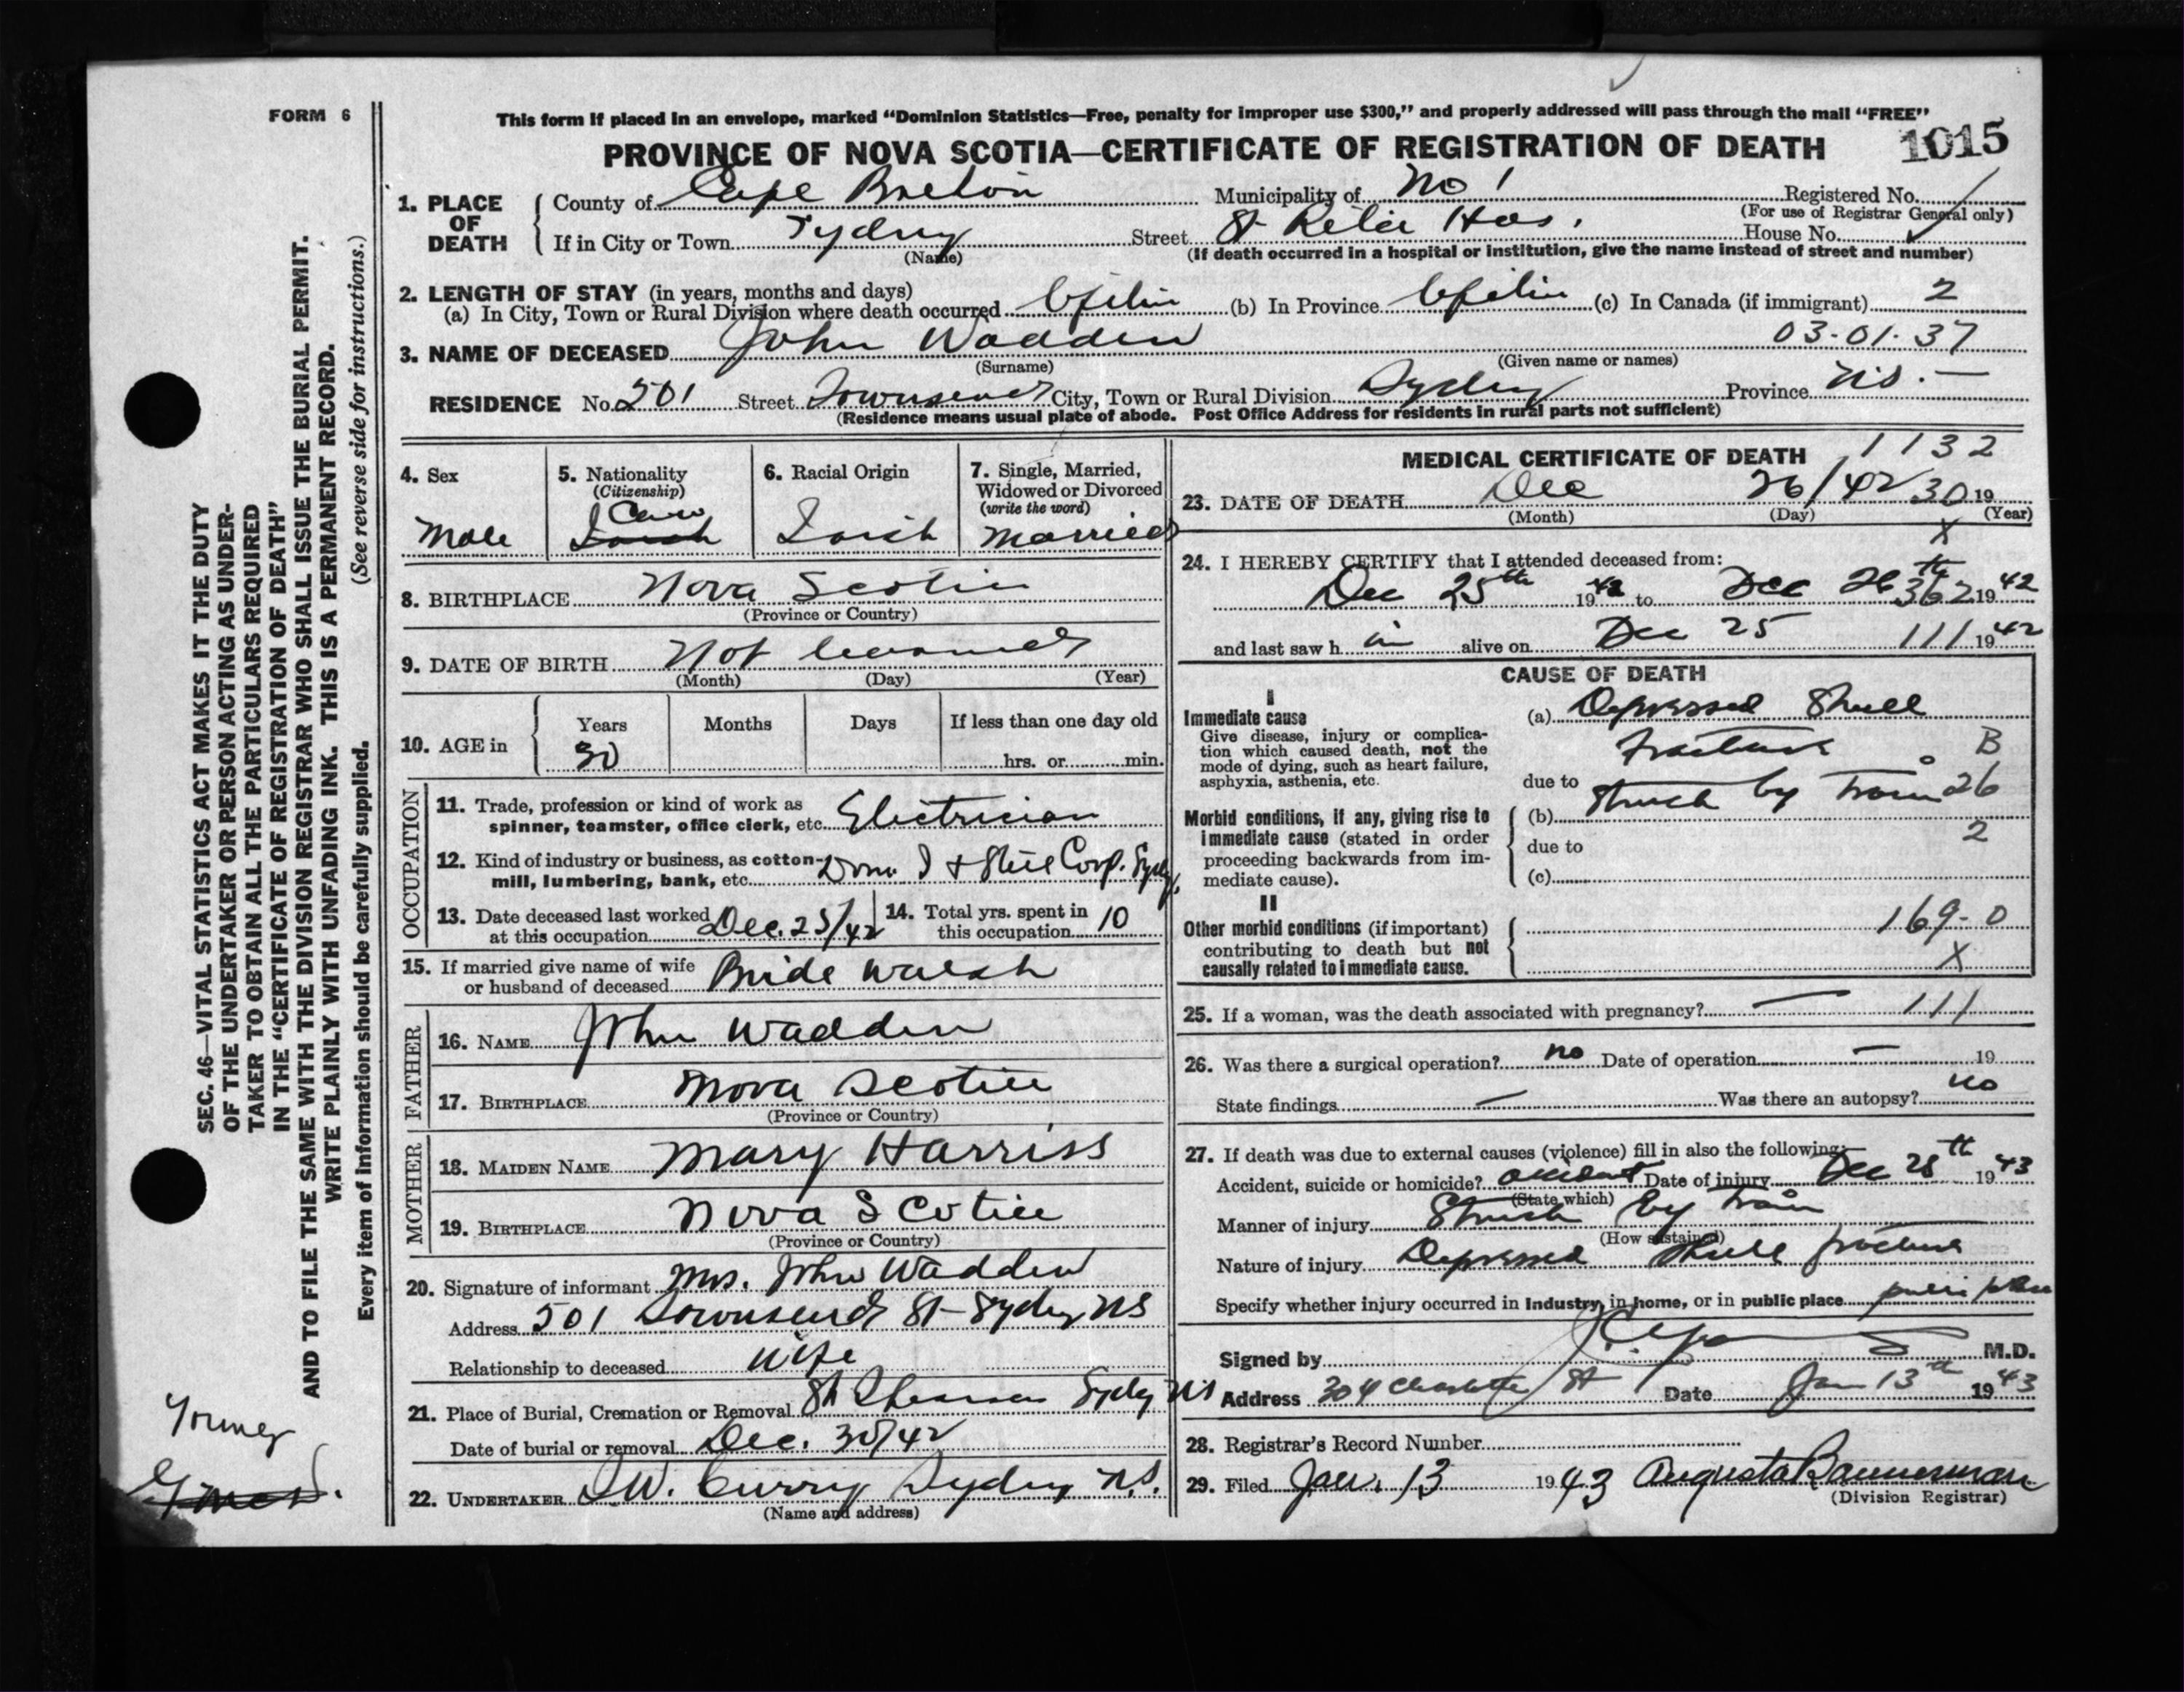 FORM 6
This form if placed in an envelope, marked “Dominion Statistics—Free, penalty for improper use $300,” and properly addressed will pass through the mail “FREE”
PROVINCE OF NOVA SCOTIA—CERTIFICATE OF REGISTRATION OF DEATH 1015
1. PLACE OF DEATH
County of Cape Breton Municipality of No 1 Registered No.
(For use of Registrar General only)
If in City or Town Sydney Street St Rita Hos. House No.
(Name) (If death occurred in a hospital or institution, give the name instead of street and number)
2. LENGTH OF STAY (in years, months and days)
(a) In City, Town or Rural Division where death occurred Lifetim (b) In Province Lifetim (c) In Canada (if immigrant) 2
3. NAME OF DECEASED John Wadden 03-01-37
(Surname) (Given name or names)
RESIDENCE No. 501 Street Townsend City, Town or Rural Division Sydney Province N.S. —
(Residence means usual place of abode. Post Office Address for residents in rural parts not sufficient)
4. Sex
Male
5. Nationality
(Citizenship)
Can
Irish
6. Racial Origin
Irish
7. Single, Married,
Widowed or Divorced
(write the word)
Married
8. BIRTHPLACE Nova Scotia
(Province or Country)
9. DATE OF BIRTH Not learned
(Month) (Day) (Year)
10. AGE in
Years Months Days If less than one day old
30 hrs. or min.
OCCUPATION
11. Trade, profession or kind of work as
spinner, teamster, office clerk, etc. Electrician
12. Kind of industry or business, as cotton-
mill, lumbering, bank, etc. Dom I + Steel Corp. Sydy.
13. Date deceased last worked
at this occupation Dec. 25/42
14. Total yrs. spent in
this occupation 10
15. If married give name of wife
or husband of deceased Bride Walsh
FATHER
16. NAME John Wadden
17. BIRTHPLACE Nova Scotia
(Province or Country)
MOTHER
18. MAIDEN NAME Mary Harriss
19. BIRTHPLACE Nova Scotia
(Province or Country)
20. Signature of informant Mrs. John Wadden
Address 501 Townsend St - Sydney NS
Relationship to deceased wife
21. Place of Burial, Cremation or Removal Sydy NS
Date of burial or removal Dec. 30/42
22. UNDERTAKER W. Curry Sydney N.S.
(Name and address)
MEDICAL CERTIFICATE OF DEATH 1132
23. DATE OF DEATH Dec 26/42 30 19
(Month) (Day) (Year)
X
24. I HEREBY CERTIFY that I attended deceased from:
Dec 25th 1942 to Dec 26th 362 1942
and last saw h im alive on Dec 25 111 1942
CAUSE OF DEATH
I
Immediate cause
Give disease, injury or complica-
tion which caused death, not the
mode of dying, such as heart failure,
asphyxia, asthenia, etc.
(a) Depressed Skull
Fracture B
due to
Struck by Train 26
Morbid conditions, if any, giving rise to
immediate cause (stated in order
proceeding backwards from im-
mediate cause).
(b)
due to 2
(c)
II
Other morbid conditions (if important)
contributing to death but not
causally related to immediate cause.
169-0
X
25. If a woman, was the death associated with pregnancy? — 111
26. Was there a surgical operation? no Date of operation — 19
State findings — Was there an autopsy? no
27. If death was due to external causes (violence) fill in also the following:
Accident, suicide or homicide? accident Date of injury Dec 25th 1943
(State which)
Manner of injury Struck by Train
(How sustained)
Nature of injury Depressed Skull fracture
Specify whether injury occurred in Industry, in home, or in public place public place
Signed by M.D.
Address 304 Charlotte St Date Jan 13th 1943
28. Registrar's Record Number
29. Filed Jan. 13 1943 Augusta Bannerman
(Division Registrar)
SEC. 46—VITAL STATISTICS ACT MAKES IT THE DUTY
OF THE UNDERTAKER OR PERSON ACTING AS UNDER-
TAKER TO OBTAIN ALL THE PARTICULARS REQUIRED
IN THE “CERTIFICATE OF REGISTRATION OF DEATH”
AND TO FILE THE SAME WITH THE DIVISION REGISTRAR WHO SHALL ISSUE THE BURIAL PERMIT.
WRITE PLAINLY WITH UNFADING INK. THIS IS A PERMANENT RECORD.
Every item of information should be carefully supplied. (See reverse side for instructions.)
Young